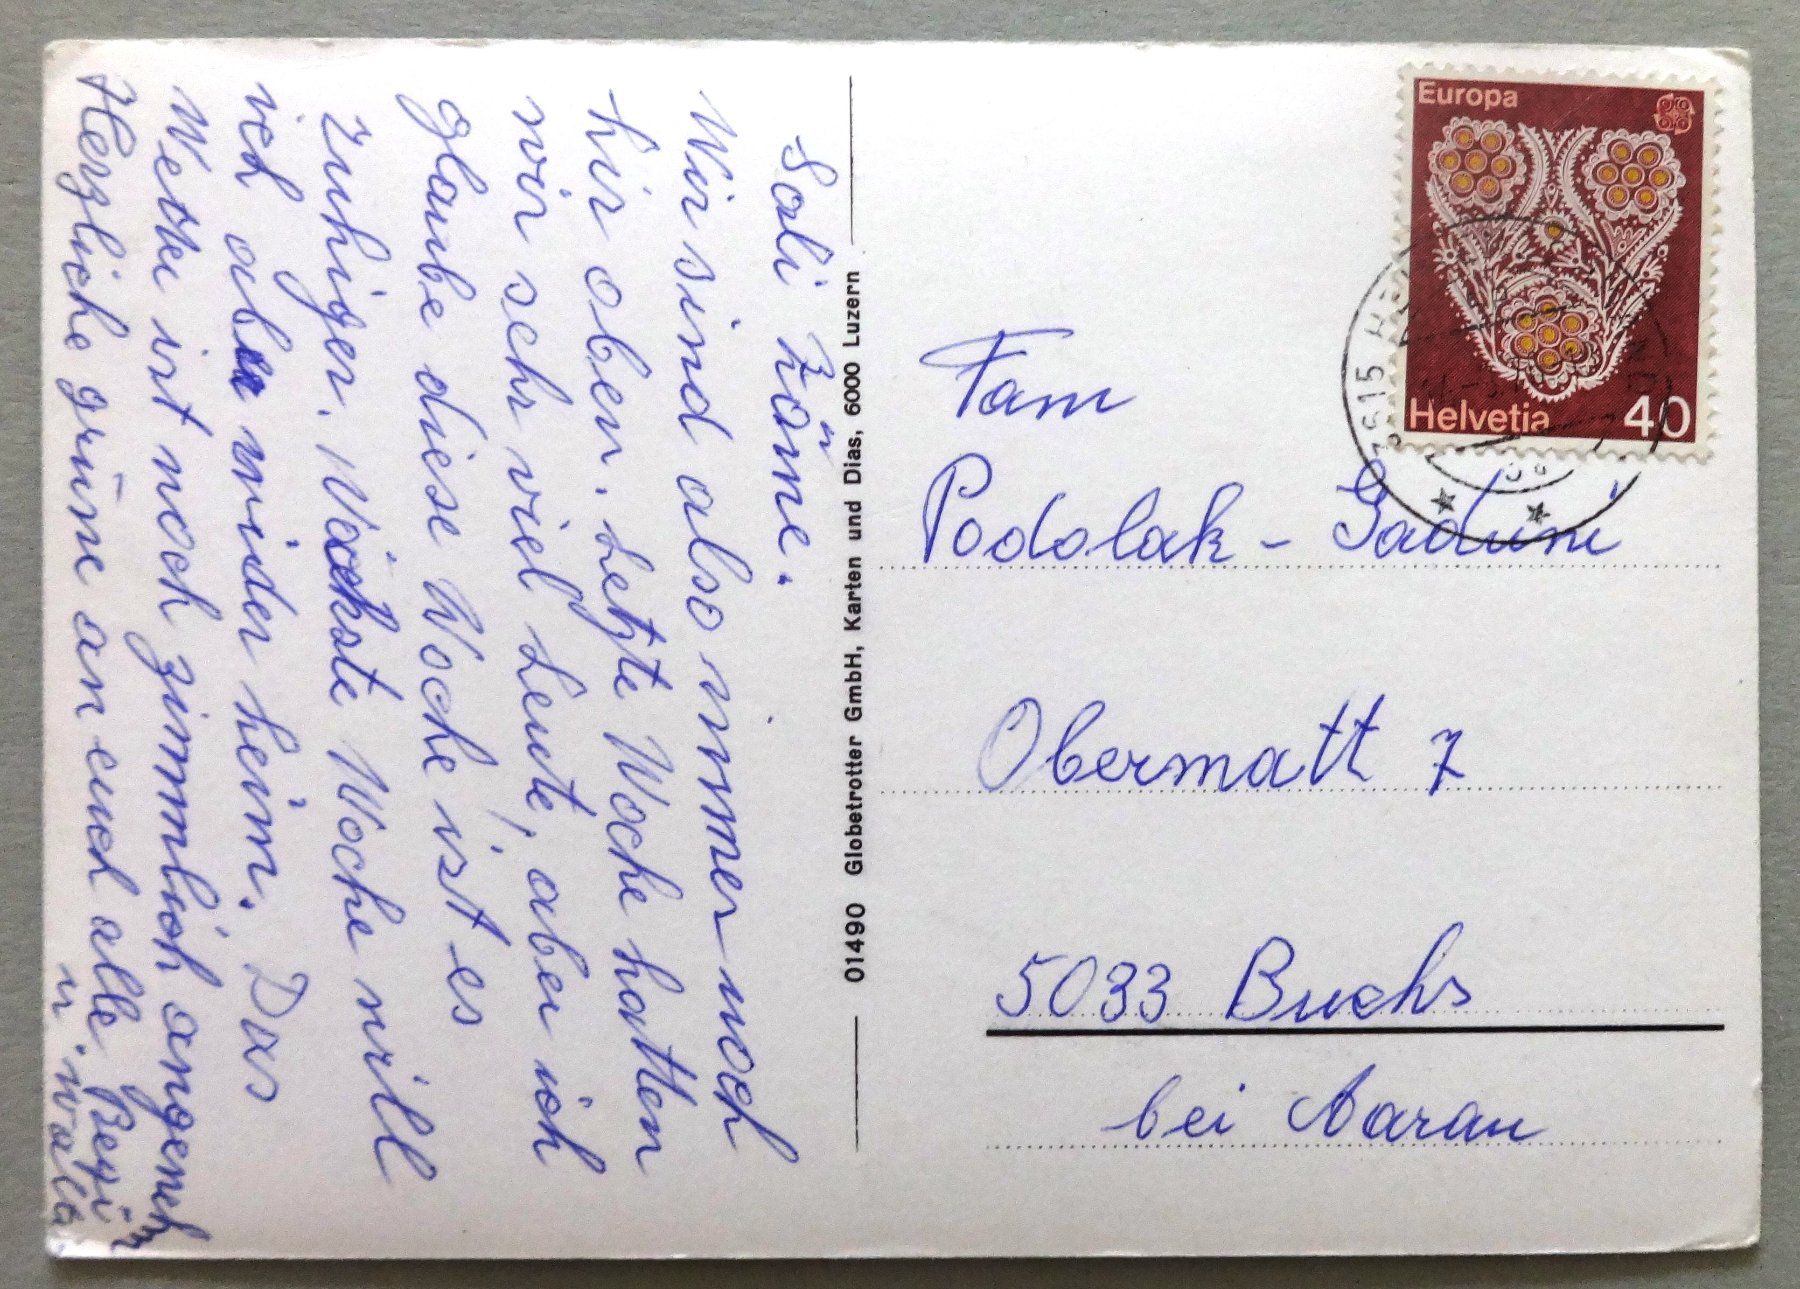 Sali zäme.
Wir sind also immer noch
hir oben. Letzte Woche hatten
wir sehr viel Leute, aber ich
glaube diese Woche ist es
ruhiger. Näckste Woche will
ich aber wider heim. Das
Wetter ist noch zimmlich angenehm
Herzliche grüse an euch alle.
01490 Globetrotter GmbH, Karten und Dias, 6000 Luzern
Europa
Helvetia 40
Fam
Podolak -
Obermatt 7
5033 Buchs
bei Aarau